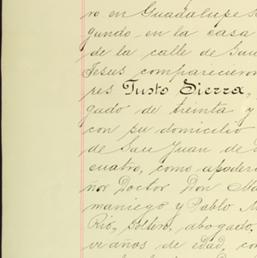 ro en Guadalupe H
gundo en la casa
de la calle de San
Jesus comparecieron
res Justo Sierra,
gado de treinta y
con su domicilio
de San Juan de
cuatro, como apodera
nor Doctor Don Ma
maniego y Pablo M
Rio, soltero, abogado,
ve años de edad, con